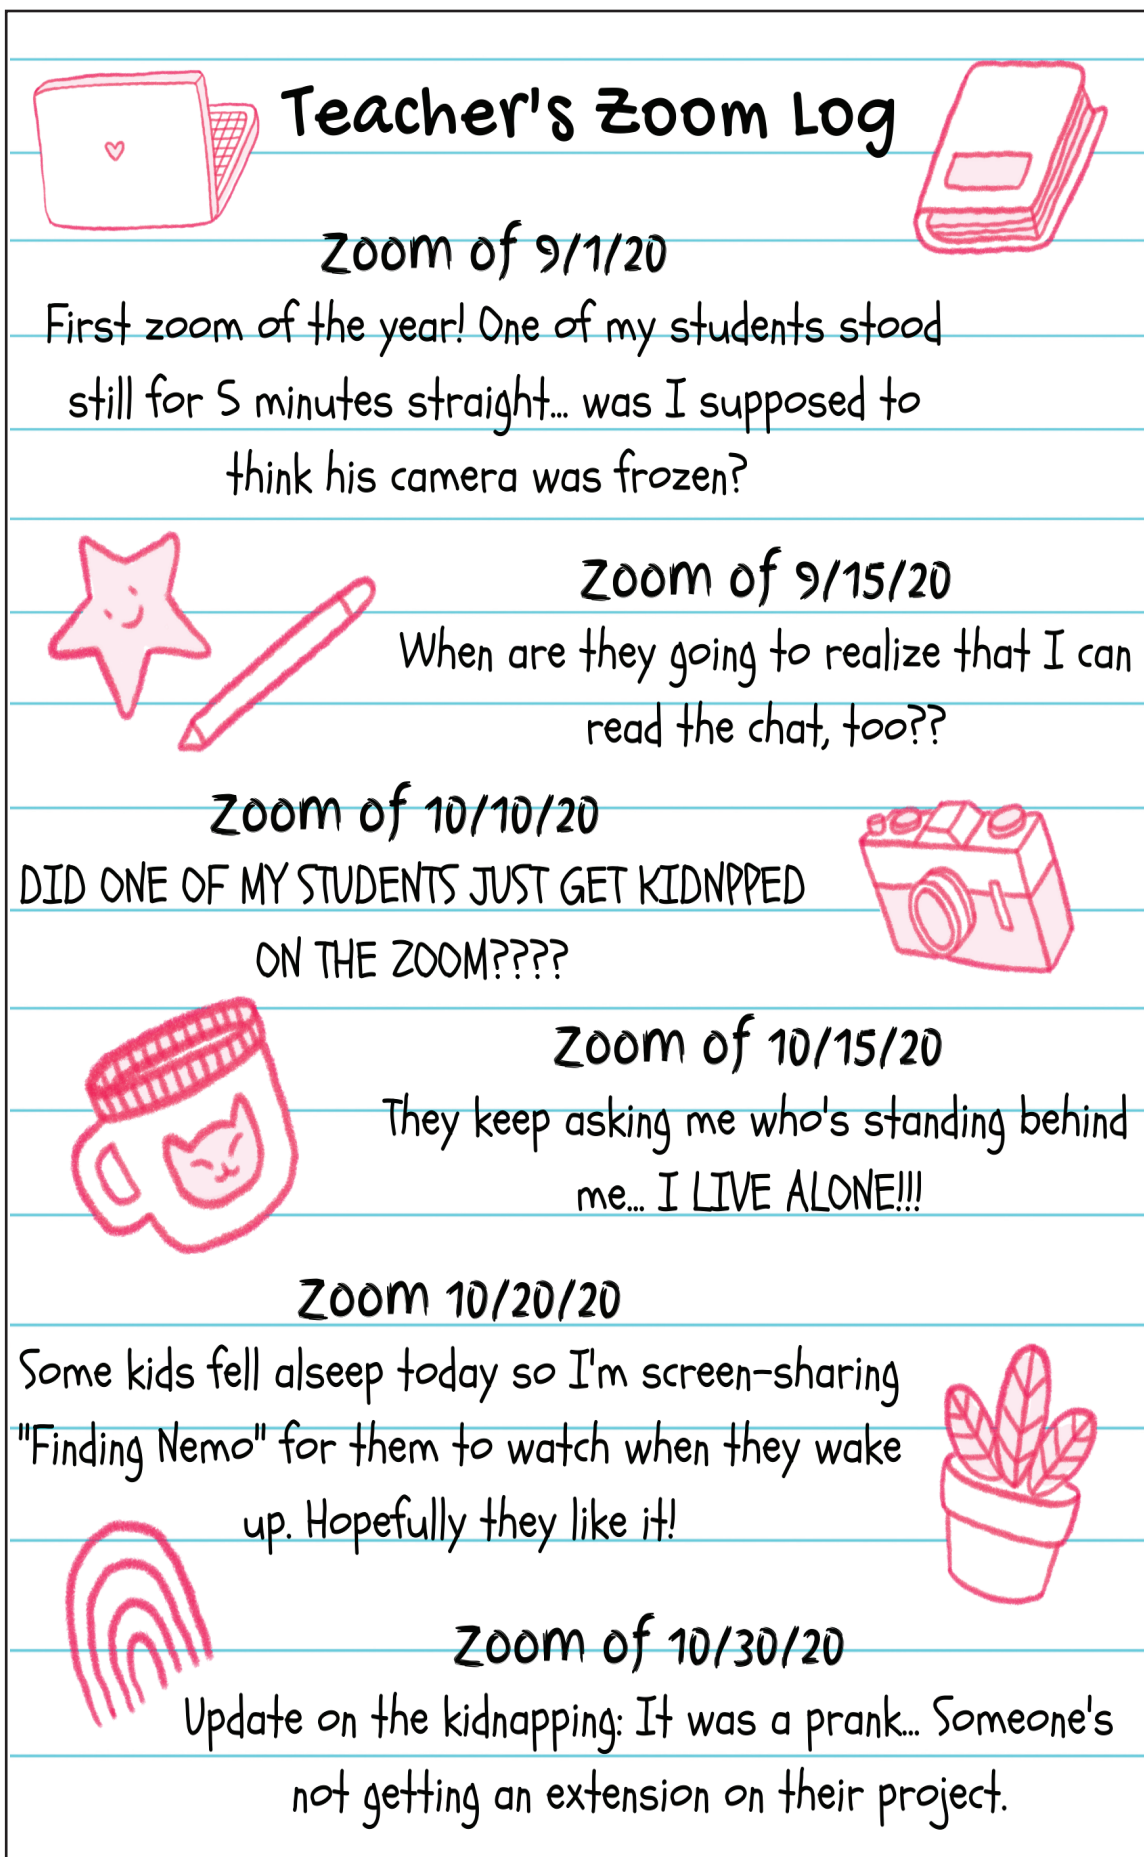 Teacher's Zoom Log
Zoom of 9/1/20
First zoom of the year! One of my students stood
still for 5 minutes straight... was I supposed to
think his camera was frozen?
Zoom of 9/15/20
When are they going to realize that I can
read the chat, too??
Zoom of 10/10/20
DID ONE OF MY STUDENTS JUST GET KIDNPPED
ON THE ZOOM????
Zoom of 10/15/20
They keep asking me who's standing behind
me... I LIVE ALONE!!!
Zoom 10/20/20
Some kids fell alseep today so I'm screen-sharing
"Finding Nemo" for them to watch when they wake
up. Hopefully they like it!
Zoom of 10/30/20
Update on the kidnapping: It was a prank... Someone's
not getting an extension on their project.